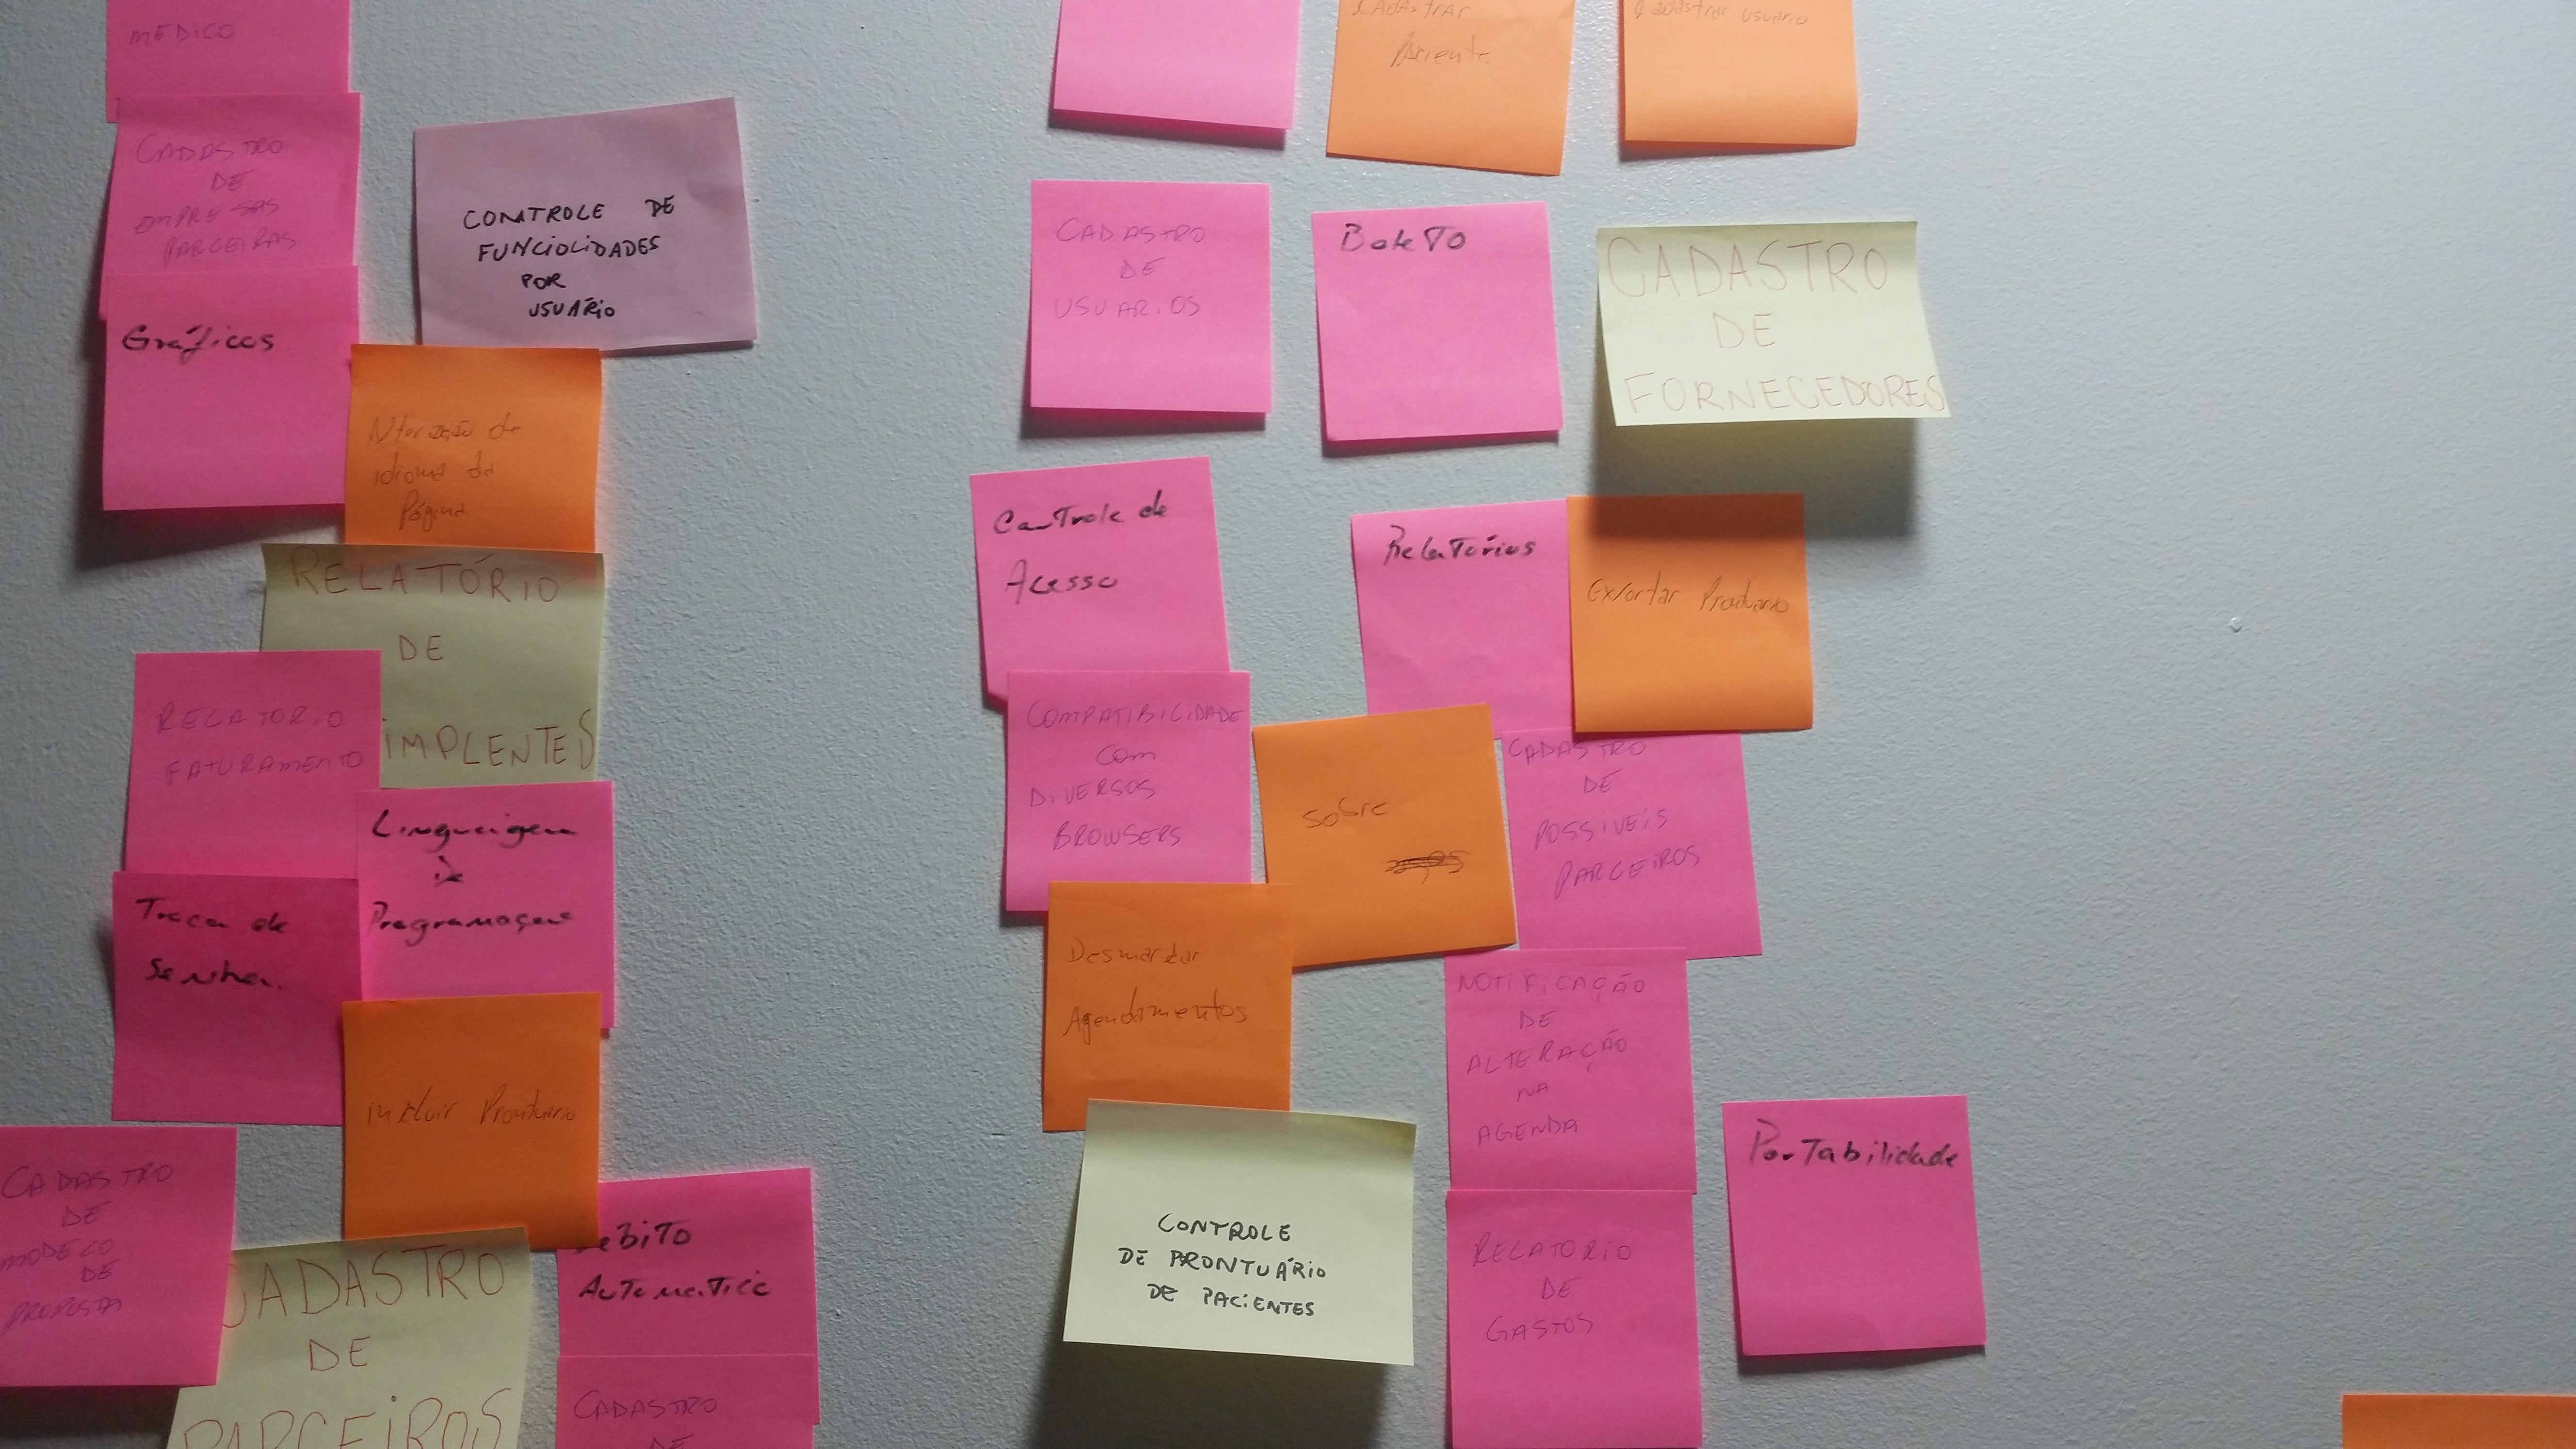 MEDICO
CADASTRO
DE
EMPRESAS
PARCEIRAS
CONTROLE DE
FUNCIOLIDADES
POR
USUÁRIO
Gráficos
Alteração de
idioma da
Página
RELATÓRIO
DE
IMPLENTES
RELATORIO
FATURAMENTO
Linguaigem
de
Programaçao
Troca de
Senha.
incluir Prontuario
CADASTRO
DE
MODELO
DE
PROPOSTA
CADASTRO
DE
PARCEIROS
ebito
Automatico
CADASTRO
DE
Cadastrar
Paciente
Cadastrar usuario
CADASTRO
DE
USUARIOS
Boleto
CADASTRO
DE
FORNECEDORES
Controle de
Acesso
Relatórios
Exportar Prontuario
COMPATIBILIDADE
com
DIVERSOS
BROWSERS
Sobre
CADASTRO
DE
POSSIVEIS
PARCEIROS
Desmarcar
Agendamentos
NOTIFICAÇÃO
DE
ALTERAÇÃO
NA
AGENDA
CONTROLE
DE PRONTUÁRIO
DE PACIENTES
Portabilidade
RELATORIO
DE
GASTOS